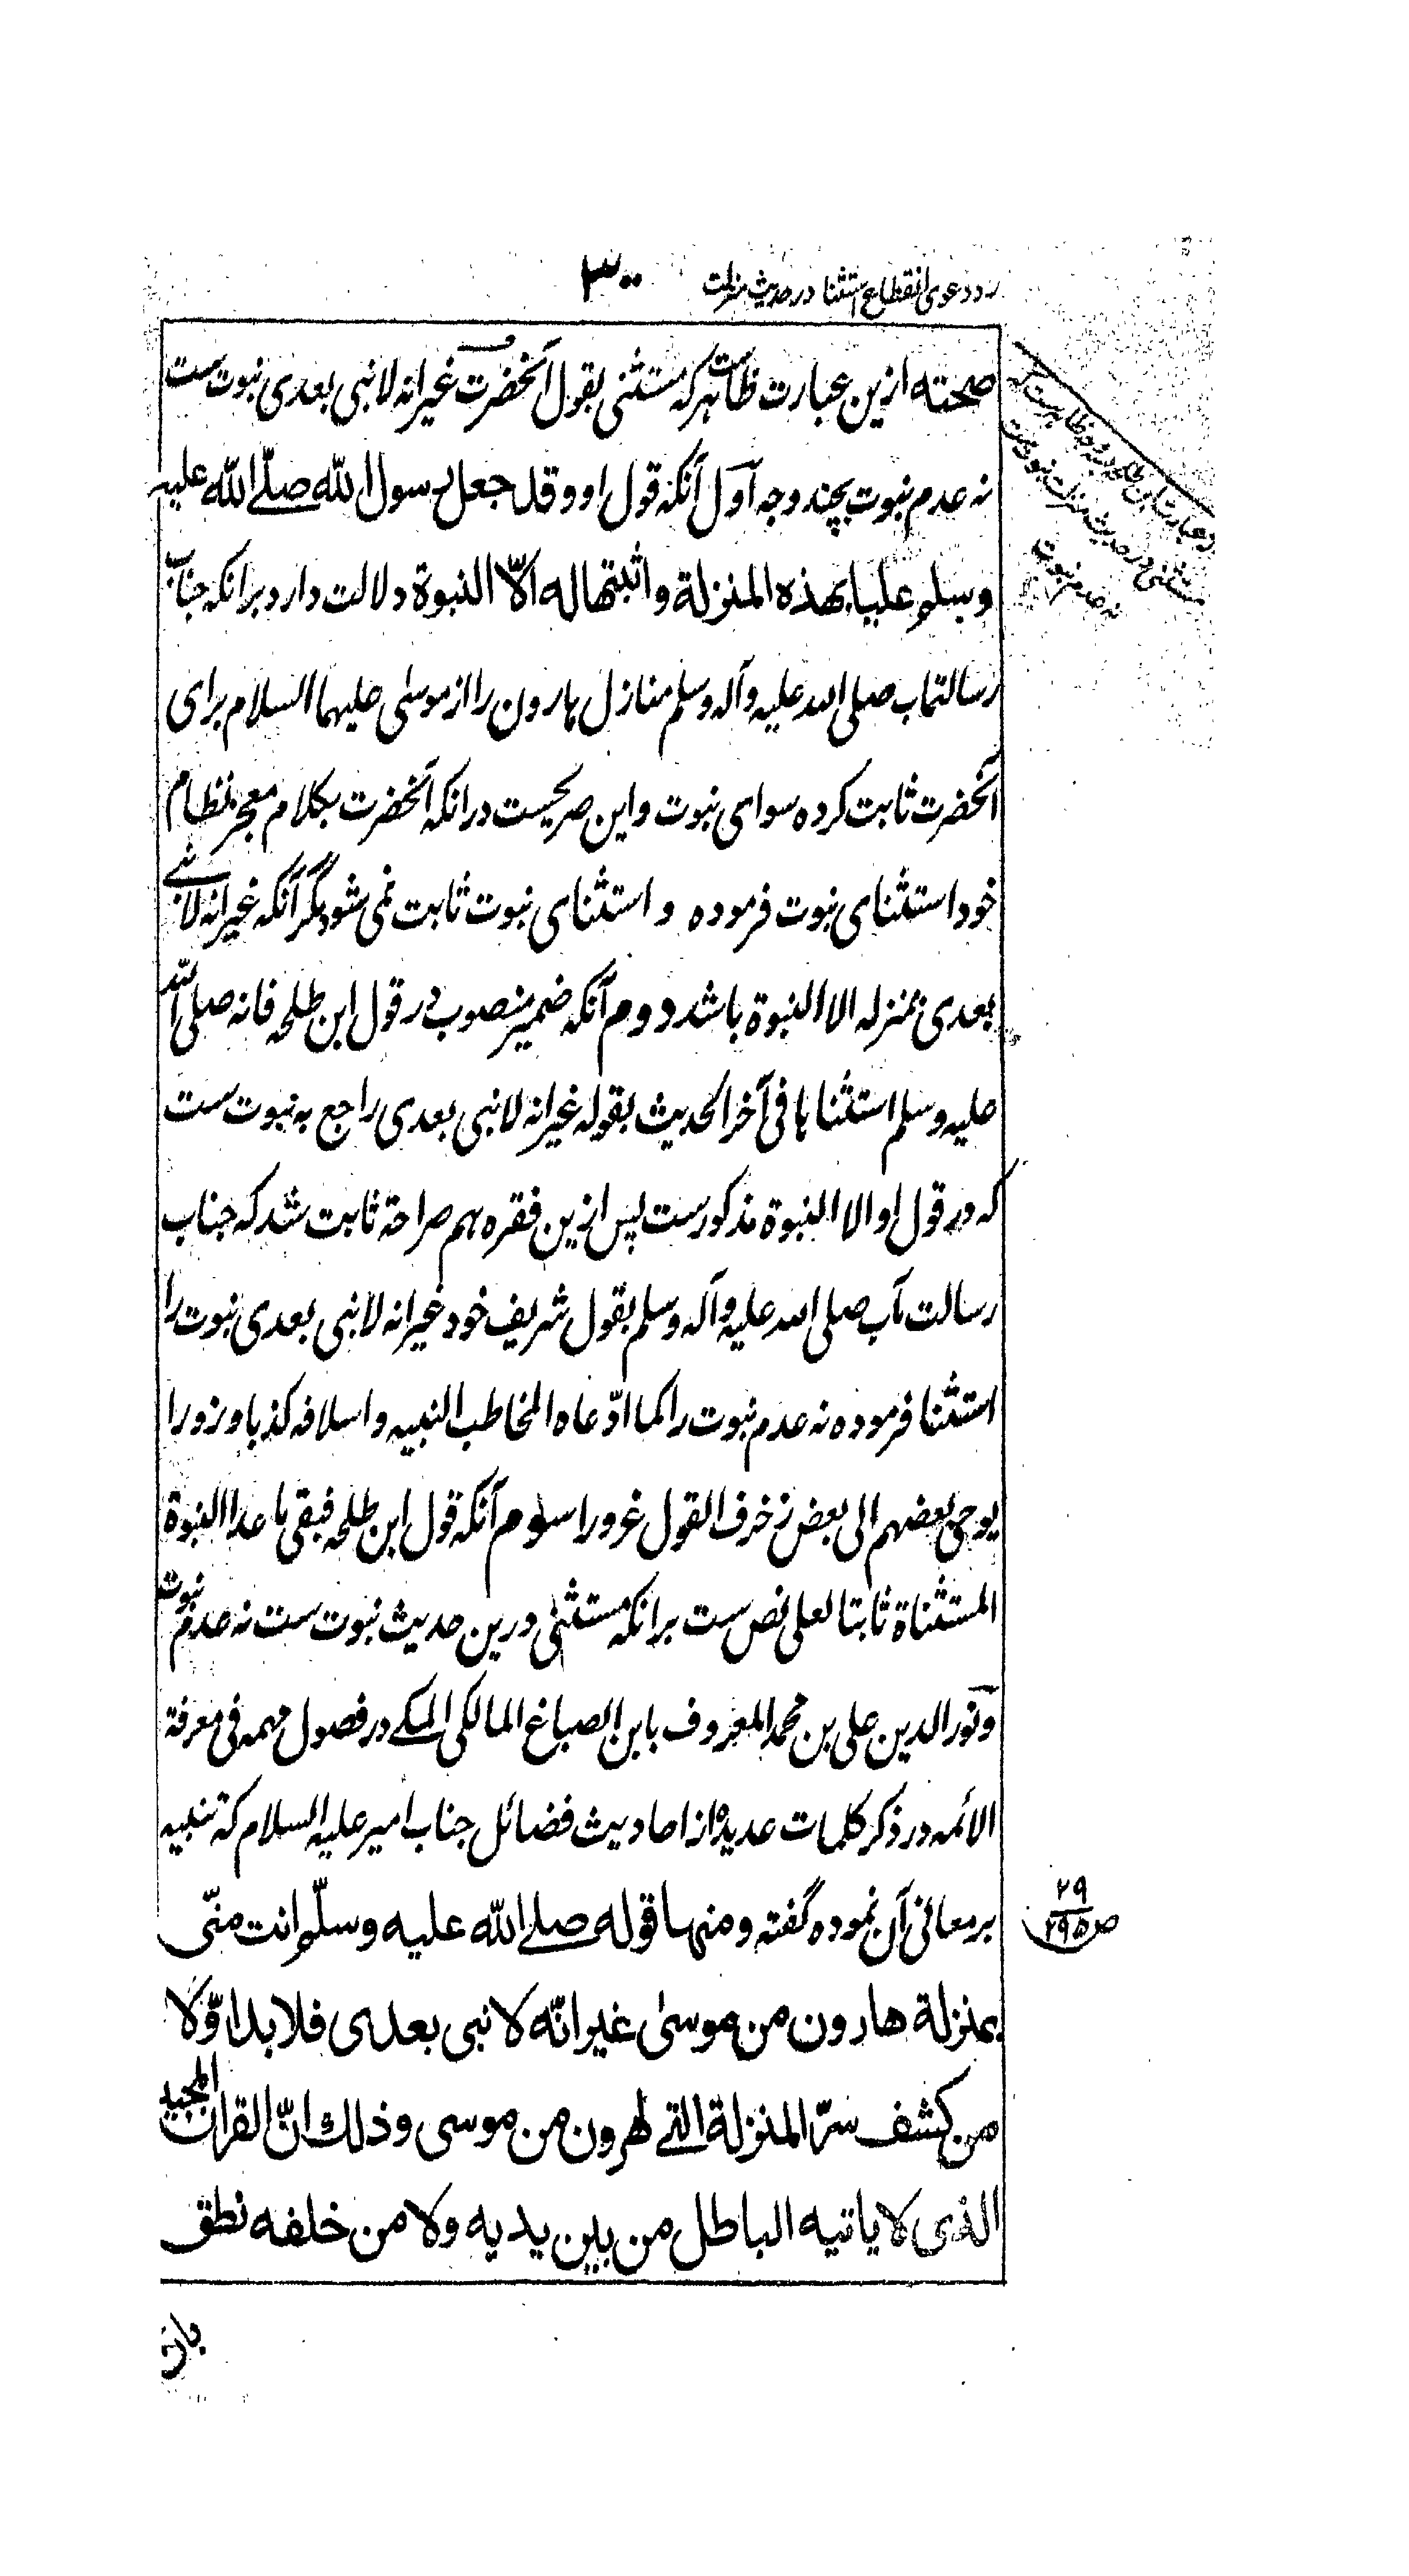 رد دعوی انقطاع استثنا در حدیث منزلت
۳۰۰
صحته ازین عبارت ظاهرست که مستثنی بقول آنحضرت غیر انه لا نبی بعدی نبوت ست
نه عدم نبوت بچند وجه اول آنکه قول او و قد جعل رسول الله صلّے الله علیه
وسلم علیا بهذه المنزلة واثبتها له الّا النبوة دلالت دارد برانکه جناب
رسالتمآب صلی الله علیه وآله وسلم منازل هارون را از موسی علیهما السلام برای
آنحضرت ثابت کرده سوای نبوت واین صریحست درانکه آنحضرت بکلام معجز نظام
خود استثنای نبوت فرموده و استثنای نبوت ثابت نمی شود مگر آنکه غیر انه لا نبے
بعدی بمنزله الا النبوة باشد دوم آنکه ضمیر منصوب در قول ابن طلحه فانه صلی الله
علیه وسلم استثناها فی آخر الحدیث بقوله غیر انه لا نبی بعدی راجع به نبوت ست
که در قول او الا النبوة مذکورست پس ازین فقره هم صراحة ثابت شد که جناب
رسالت مآب صلی الله علیه وآله وسلم بقول شریف خود غیر انه لا نبی بعدی نبوت را
استثنا فرموده نه عدم نبوت را کما ادّعاه المخاطب النبیه واسلافه کذبا وزورا
یوحی بعضهم الی بعض زخرف القول غرورا سوم آنکه قول ابن طلحه فبقی ما عدا النبوة
المستثناة ثابتا لعلی نص ست برانکه مستثنی درین حدیث نبوت ست نه عدم نبوت
ونور الدین علی بن محمد المعروف بابن الصباغ المالکی المکے در فصول مهمه فی معرفة
الائمه در ذکر کلمات عدیده از احادیث فضائل جناب امیر علیه السلام که تنبیه
بر معانی آن نموده گفته ومنها قوله صلے الله علیه وسلّم انت منّی
بمنزلة هارون من موسیٰ غیر انّه لا نبی بعدی فلا بد اوّلا
من کشف سرّ المنزلة التے لهرون من موسی وذلك انّ القران المجید
الذی لا یاتیه الباطل من بین یدیه ولا من خلفه نطق
۲۹
ص ۲۹۵
بان